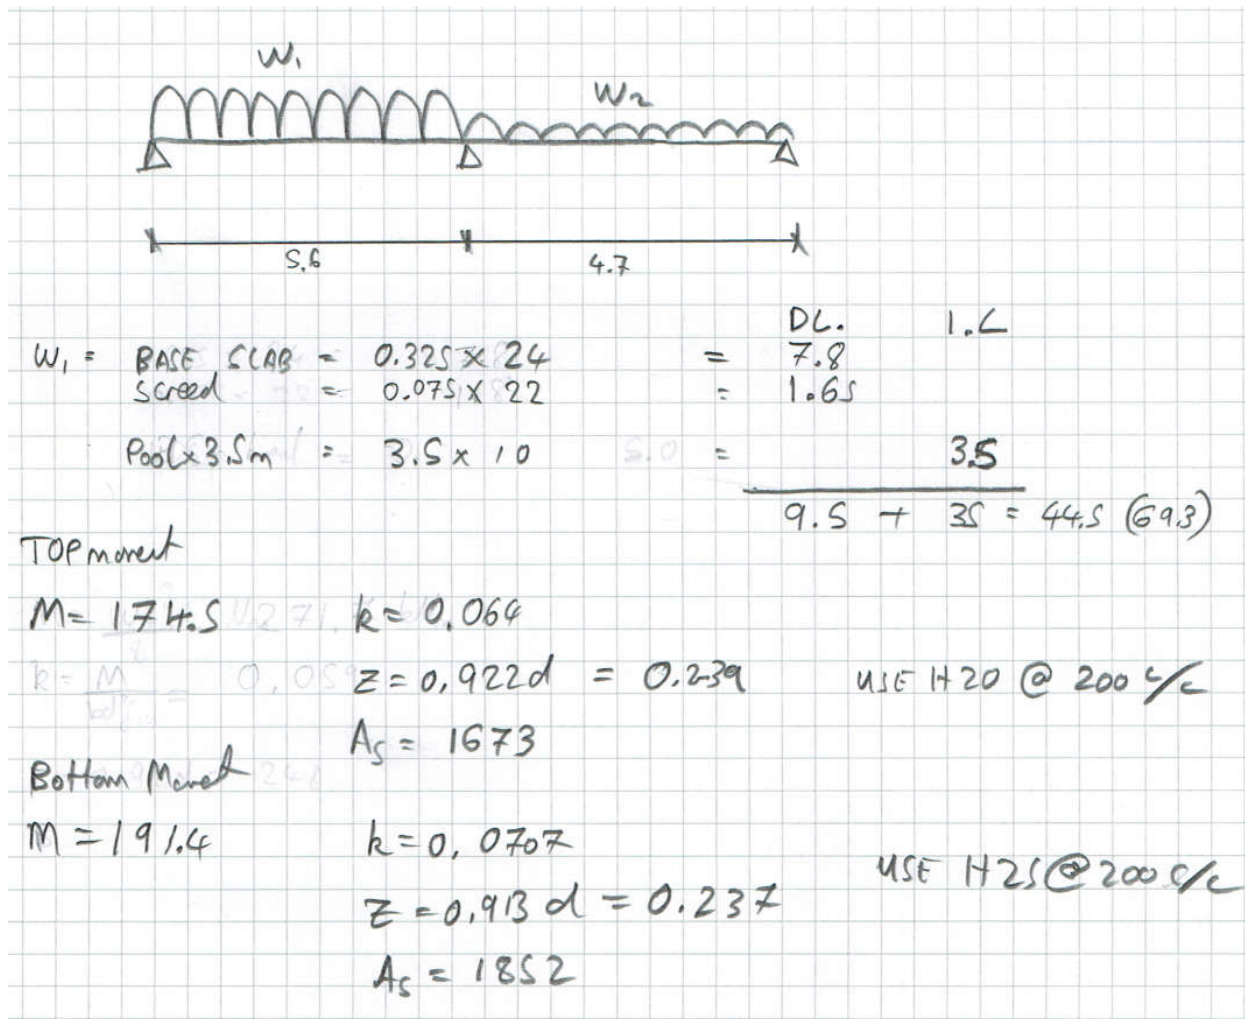 W1
W2
5.6
4.7
DL. I.L
W1 = BASE SLAB = 0.325 x 24 = 7.8
Screed = 0.075 x 22 = 1.65
Pool x 3.5m = 3.5 x 10 = 35
9.5 + 35 = 44.5 (69.3)
TOP moment
M = 174.5 k = 0.064
z = 0.922d = 0.239 USE H20 @ 200 c/c
As = 1673
Bottom Moment
M = 191.4 k = 0.0707
z = 0.913d = 0.237 USE H25 @ 200 c/c
As = 1852